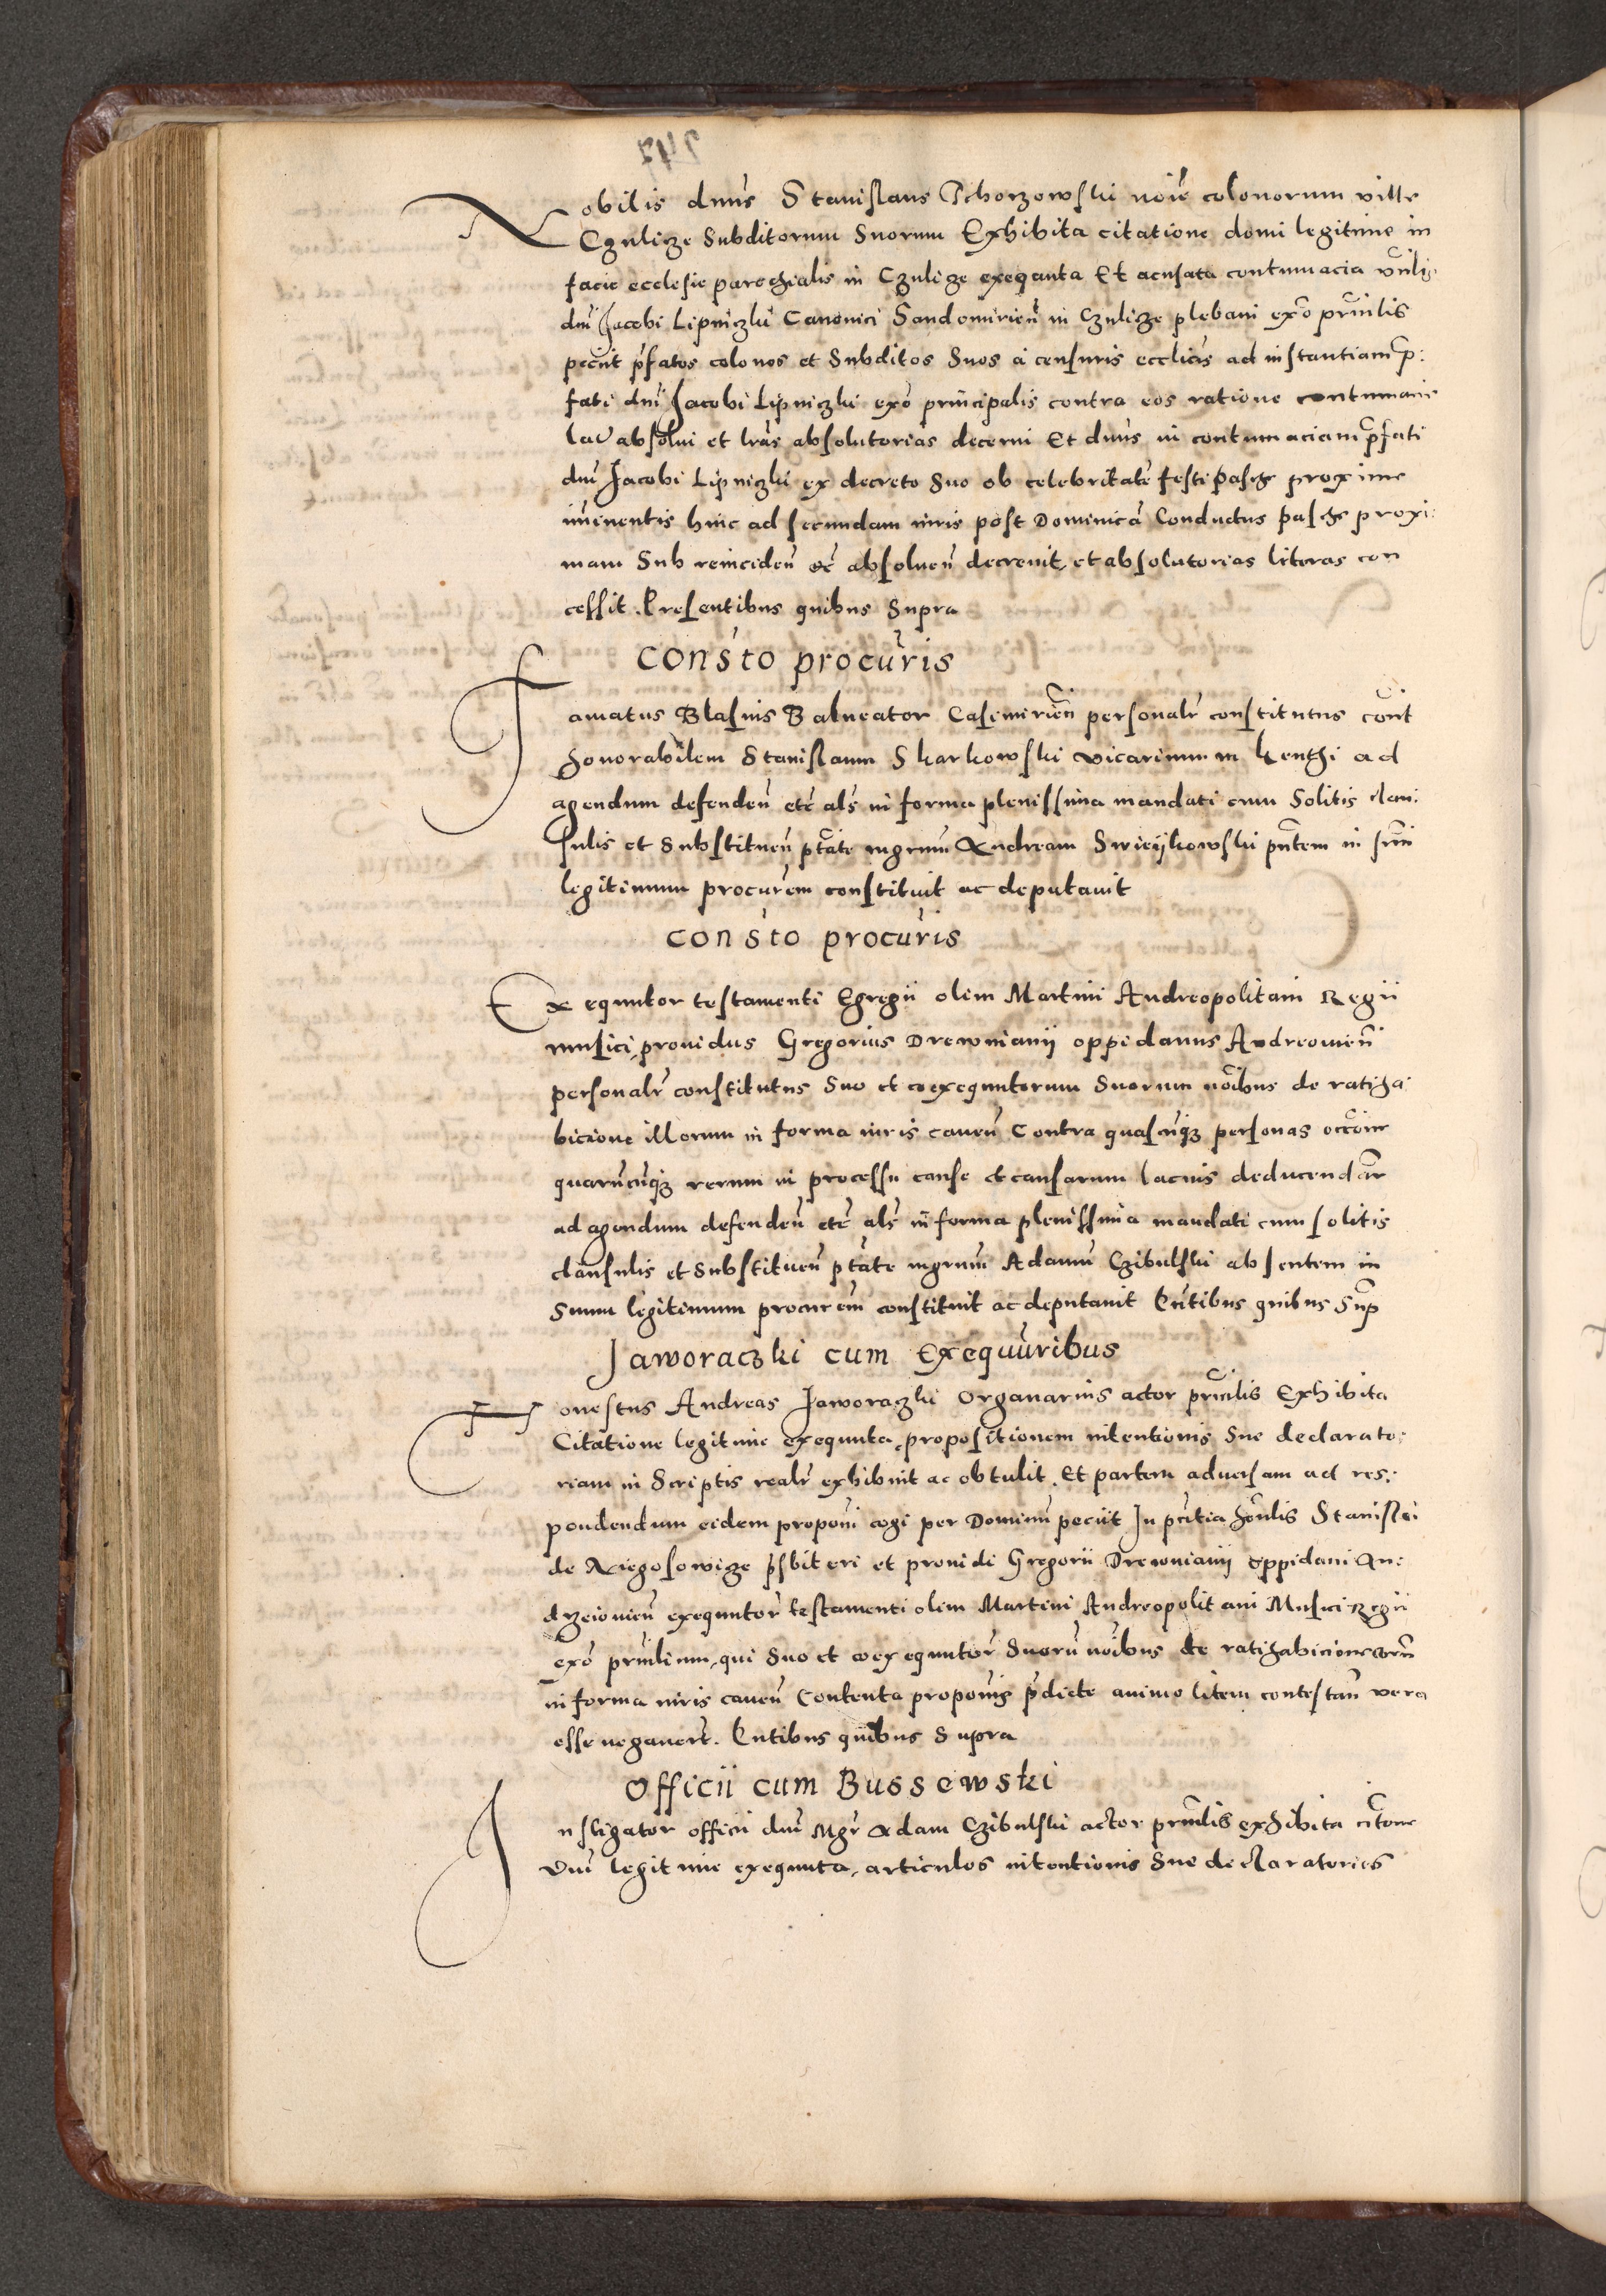 Nobilis dnūs Stanislaus Pthorzowski noīe colonorum ville
Czulicze Subditorum Suorum Exhibita citatione domi legitime in
facie ecclesie parochialis in Czulicze exequuta Et acusata contumacia Vnlis
dnī Jacobi Lipniczki Canonici Sandomirieñ in Czulicze plebani exō prñlis
peciit p̄fatos colonos et Subditos Suos a censuris ecclīcis ad instantiam p̄:
fati dnī Jacobi Lipniczki exō principalis contra eos ratione contumacie
latˢ absolui et lrās absolutorias decerni Et dnūs in contumaciam p̄fati
dnī Jacobi Lipniczki ex decreto Suo ob celebritatē festi pasche proxime
iminentis hinc ad secundam iuris post Dominicā Conductus pasche proxi:
mam Sub reincideñ etc̄ absolueñ decreuit, et absolutorias literas con
cessit. Presentibus quibus Supra
Consto procuris
Famatus Blasius Balneator Casimirieñ personalr̄ constitutus coñt
honorabilem Stanislaum Skarkowski vicarium in Kenthi ad
agendum defendeñ etc̄ als̄ in forma plenissima mandati cum Solitis clau:
sulis et Substitueñ ptāte mgrum Andream Swieijkowski pñtem in suū
legitimum procurem constituit ac deputauit
Consto procuris
Exequutor testamenti Egregii olim Martini Andreopolitani Regii
musici, prouidus Gregorius Drewnianij oppidanus Andreouieñ
personalr̄ constitutus Suo et coexequutorum Suorum noībus de ratiha:
bicione illorum in forma iuris caueñ Contra quascūqz personas occōne
quarūcūqz rerum in processu cause et causarum lacius deducendar̄
ad agendum defendeñ etc̄ als̄ in forma plenissima mandati cum solitis
clausulis et Substitueñ ptāte mgrum Adamū Czibulski absentem in
Suum legitimum procurem constituit ac deputauit Pñtibus quibus Sup̄
Jaworaczki cum Exequuribus
Honestus Andreas Jaworaczki Organarius actor prñlis Exhibita
Citatione legitime exequuta, propositionem intentionis Sue declarato:
riam in Scriptis realr̄ exhibuit ac obtulit. Et partem aduersam ad res:
pondendum eidem proponi cogi per Dominū peciit In pñtia honlis Stanislai
de Xiegosowicze p̄sbiteri et prouidi Gregorii Drewnianij oppidani An:
drzeiouieñ exequutor̄ testamenti olim Martini Andreopolitani Musici Regii
exō prñlium, qui Suo et coexequutor̄ Suorū noībus de ratihabicione eorū
in forma iuris caueñ Contenta proponis p̄dicte animo litem contestañ vera
esse negauert. Pñtibus quibus Supra
Officii cum Bussowski
Instigator officii dnī Mgr̄ Adam Czibulski actor prñlis exhibita citōne
dnī legitime exequuta, articulos intentionis Sue declaratorios